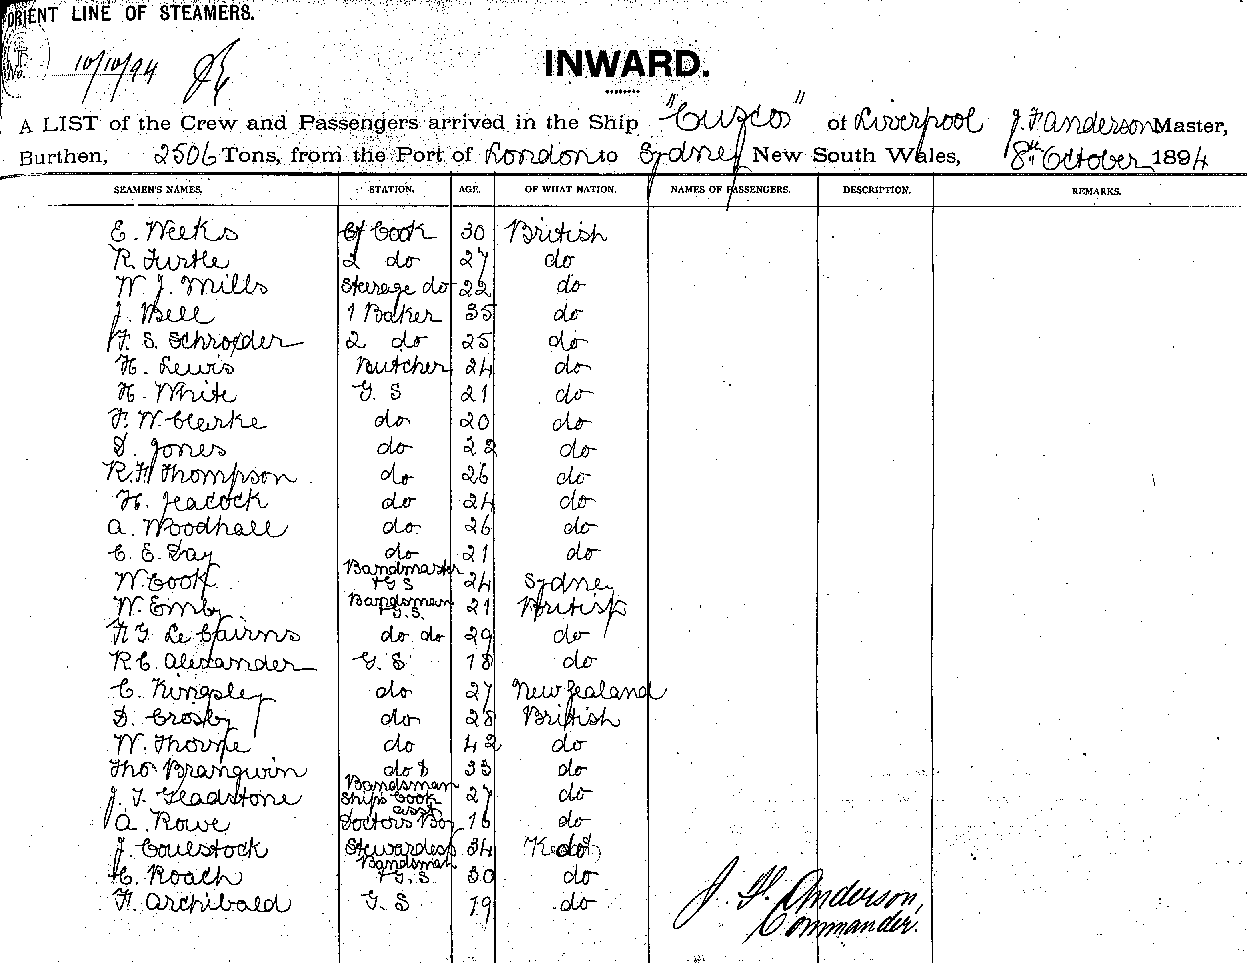 ORIENT LINE OF STEAMERS.
No. 10/10/94
INWARD.
A LIST of the Crew and Passengers arrived in the Ship "Cuzco" of Liverpool J F Anderson Master,
Burthen, 2506 Tons, from the Port of London to Sydney New South Wales, 8th October 1894
SEAMEN'S NAMES. STATION. AGE. OF WHAT NATION. NAMES OF PASSENGERS. DESCRIPTION. REMARKS.
E. Weeks Cf Cook 30 British
R. Turtle 2 do 27 do
W. J. Mills Steerage do 22 do
J. Bell 1 Baker 35 do
F. S. Schroeder 2 do 25 do
H. Lewis Butcher 24 do
H. White G. S 21 do
F. W. Clarke do 20 do
D. Jones do 22 do
R. H Thompson do 26 do
H. Jeacock do 24 do
A. Woodhall do 26 do
C. E. Day do 21 do
W. Cook Bandmaster + G S 24 Sydney
W. Emby Bandsman G. S. 21 British
do do 29 do
R. C. Alexander G. S 18 do
C. Kingsley do 27 New Zealand
D. Crosby do 28 British
W. Thorpe do 42 do
Thos Brangwin do & Bandsman 33 do
J. T. Gladstone Ships Cook asst 27 do
A. Rowe Doctors Boy 16 do
J. Coulstock Stewardess 34 do
C. Roach Bandsman + G. S. 30 do
H. Archibald G. S 19 do
J. F. Anderson,
Commander.